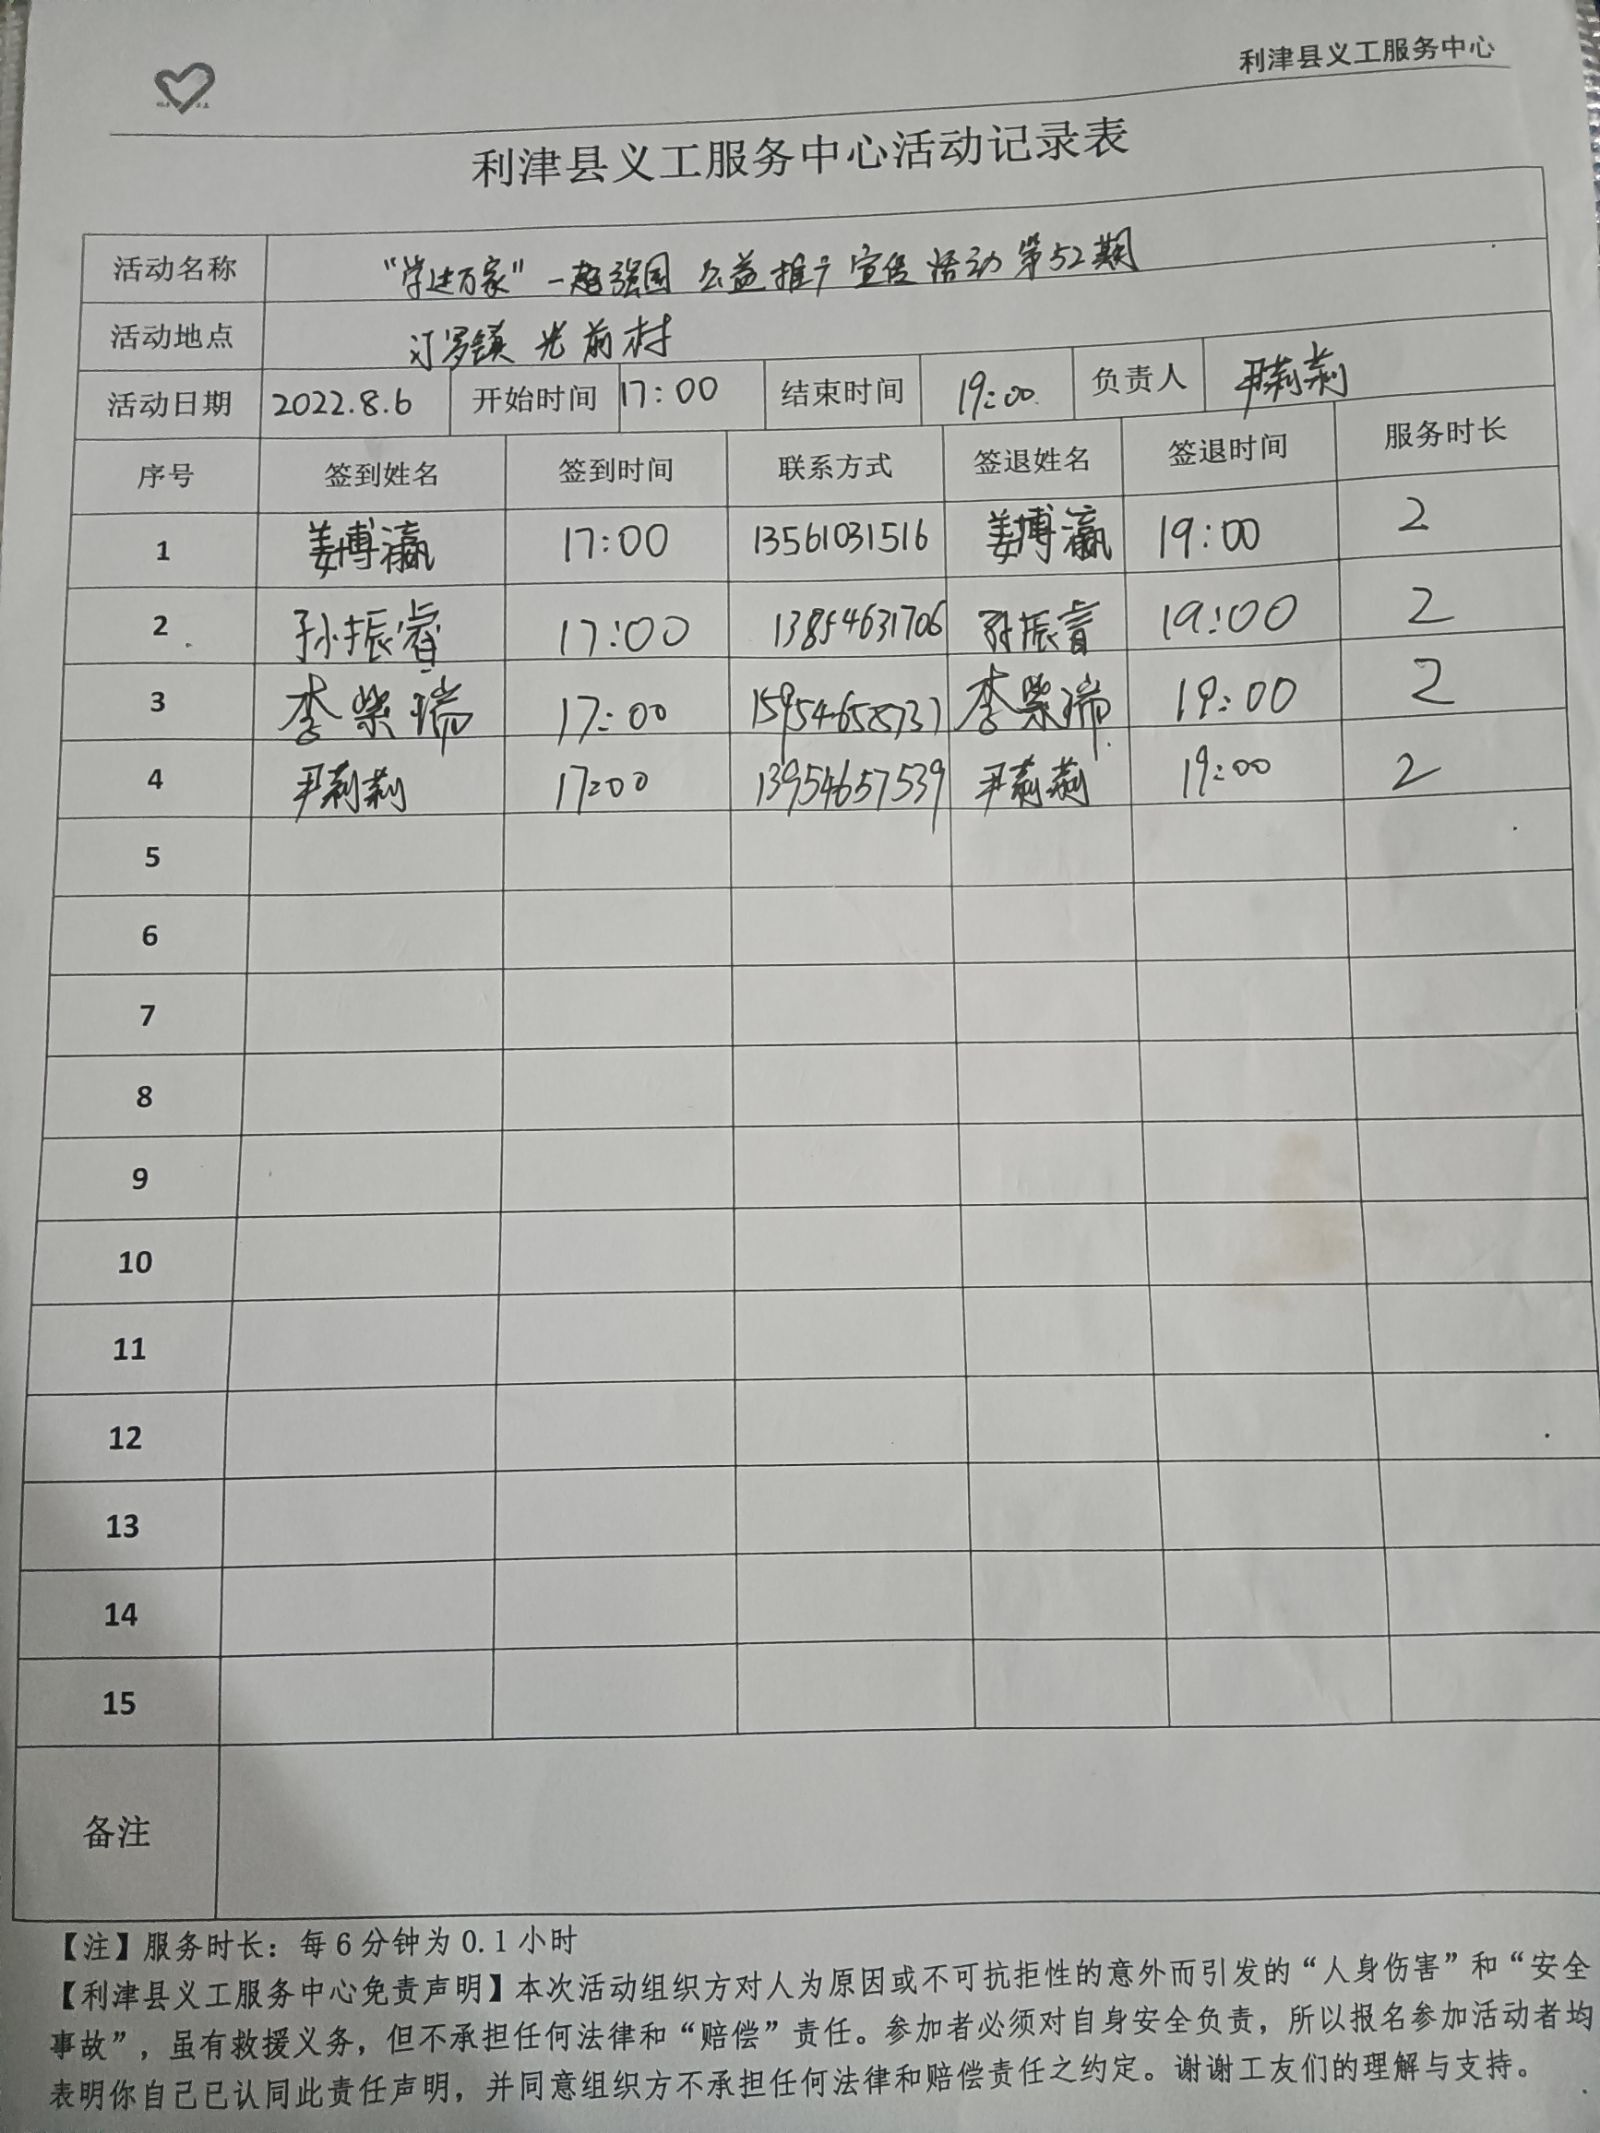 利津县义工服务中心
利津县义工服务中心活动记录表
活动名称 “学进万家”一起强国 公益推广宣传活动第52期
活动地点 汀罗镇光前村
活动日期 2022.8.6 开始时间 17:00 结束时间 19:00 负责人 尹莉莉
序号 签到姓名 签到时间 联系方式 签退姓名 签退时间 服务时长
1 姜博瀛 17:00 13561031516 姜博瀛 19:00 2
2 孙振睿 17:00 13854631706 孙振睿 19:00 2
3 李荣瑞 17:00 15954658737 李荣瑞 19:00 2
4 尹莉莉 17:00 13954657539 尹莉莉 19:00 2
5
6
7
8
9
10
11
12
13
14
15
备注
【注】服务时长：每6分钟为0.1小时
【利津县义工服务中心免责声明】本次活动组织方对人为原因或不可抗拒性的意外而引发的“人身伤害”和“安全
事故”，虽有救援义务，但不承担任何法律和“赔偿”责任。参加者必须对自身安全负责，所以报名参加活动者均
表明你自己已认同此责任声明，并同意组织方不承担任何法律和赔偿责任之约定。谢谢工友们的理解与支持。